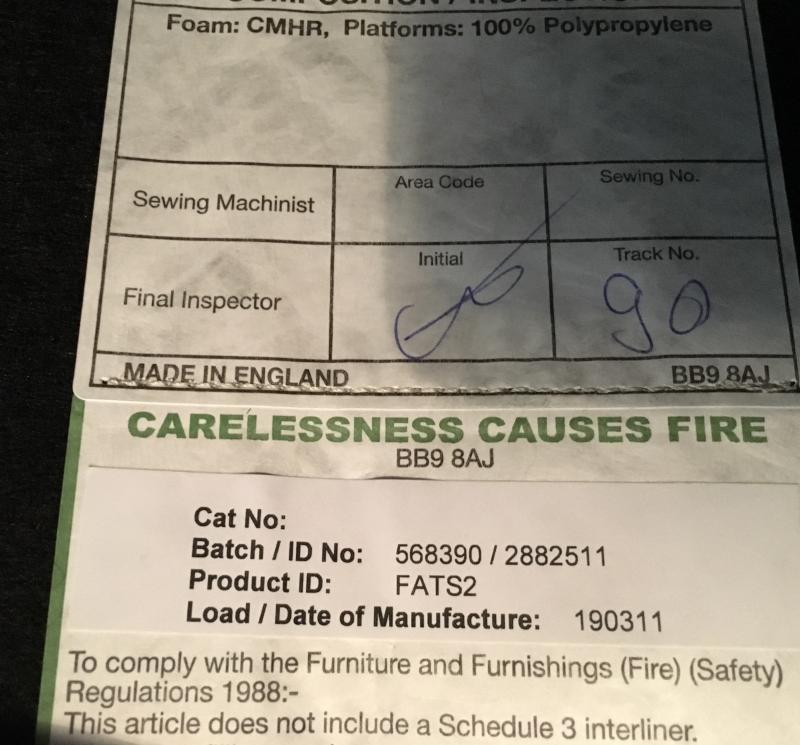 Foam: CMHR, Platforms: 100% Polypropylene
Area Code
Sewing No.
Sewing Machinist
Initial
Track No.
Final Inspector
90
MADE IN ENGLAND BB9 8AJ
CARELESSNESS CAUSES FIRE
BB9 8AJ
Cat No:
Batch / ID No: 568390 / 2882511
Product ID: FATS2
Load / Date of Manufacture: 190311
To comply with the Furniture and Furnishings (Fire) (Safety)
Regulations 1988:-
This article does not include a Schedule 3 interliner.